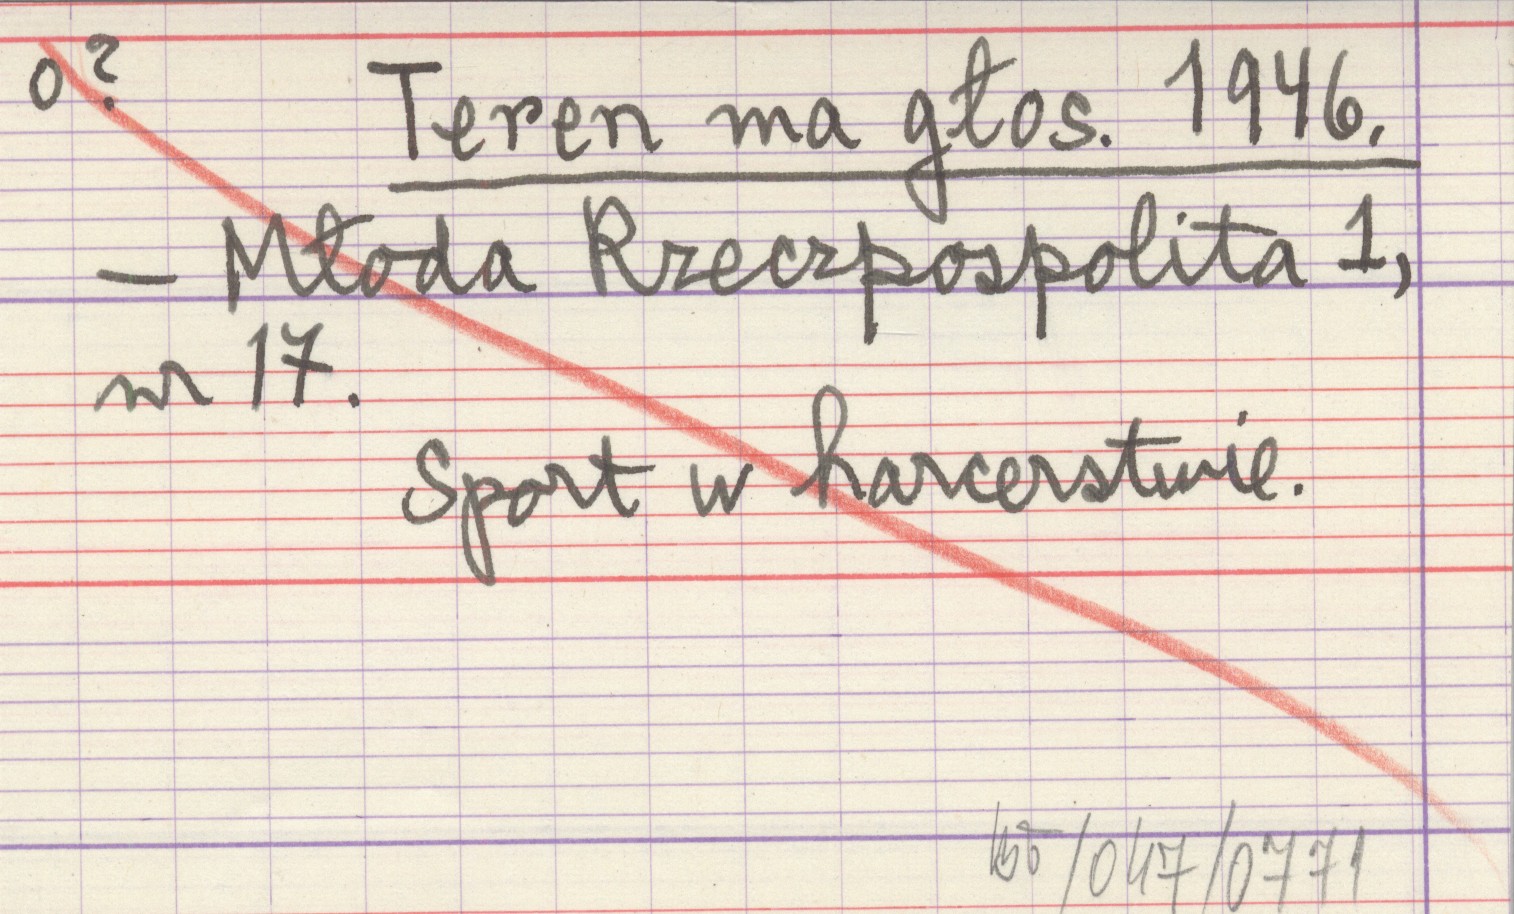 0?
Teren ma głos. 1946.
— Młoda Rzeczpospolita 1,
nr 17.
Sport w harcerstwie.
/047/0771